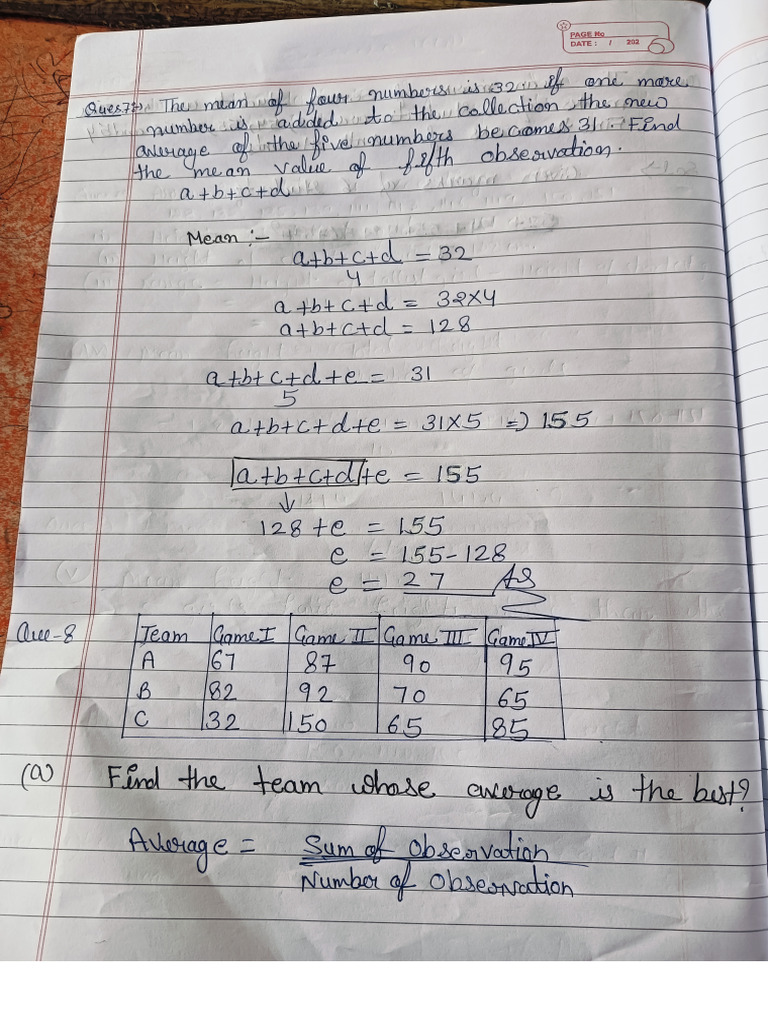 PAGE No
DATE : / 202
Ques7:- The mean of four numbers is 32 if one more
number is added to the collection the new
average of the five numbers becomes 31. Find
the mean value of fifth observation.
a+b+c+d
Mean :-
a+b+c+d = 32
4
a+b+c+d = 32×4
a+b+c+d = 128
a+b+c+d+e = 31
5
a+b+c+d+e = 31×5 => 155
a+b+c+d+e = 155
↓
128+e = 155
e = 155-128
e = 27 AS
Que-8
Team Game I Game II Game III Game IV
A 67 87 90 95
B 82 92 70 65
C 32 150 65 85
(a) Find the team whose average is the best?
Average = Sum of Observation
Number of Observation